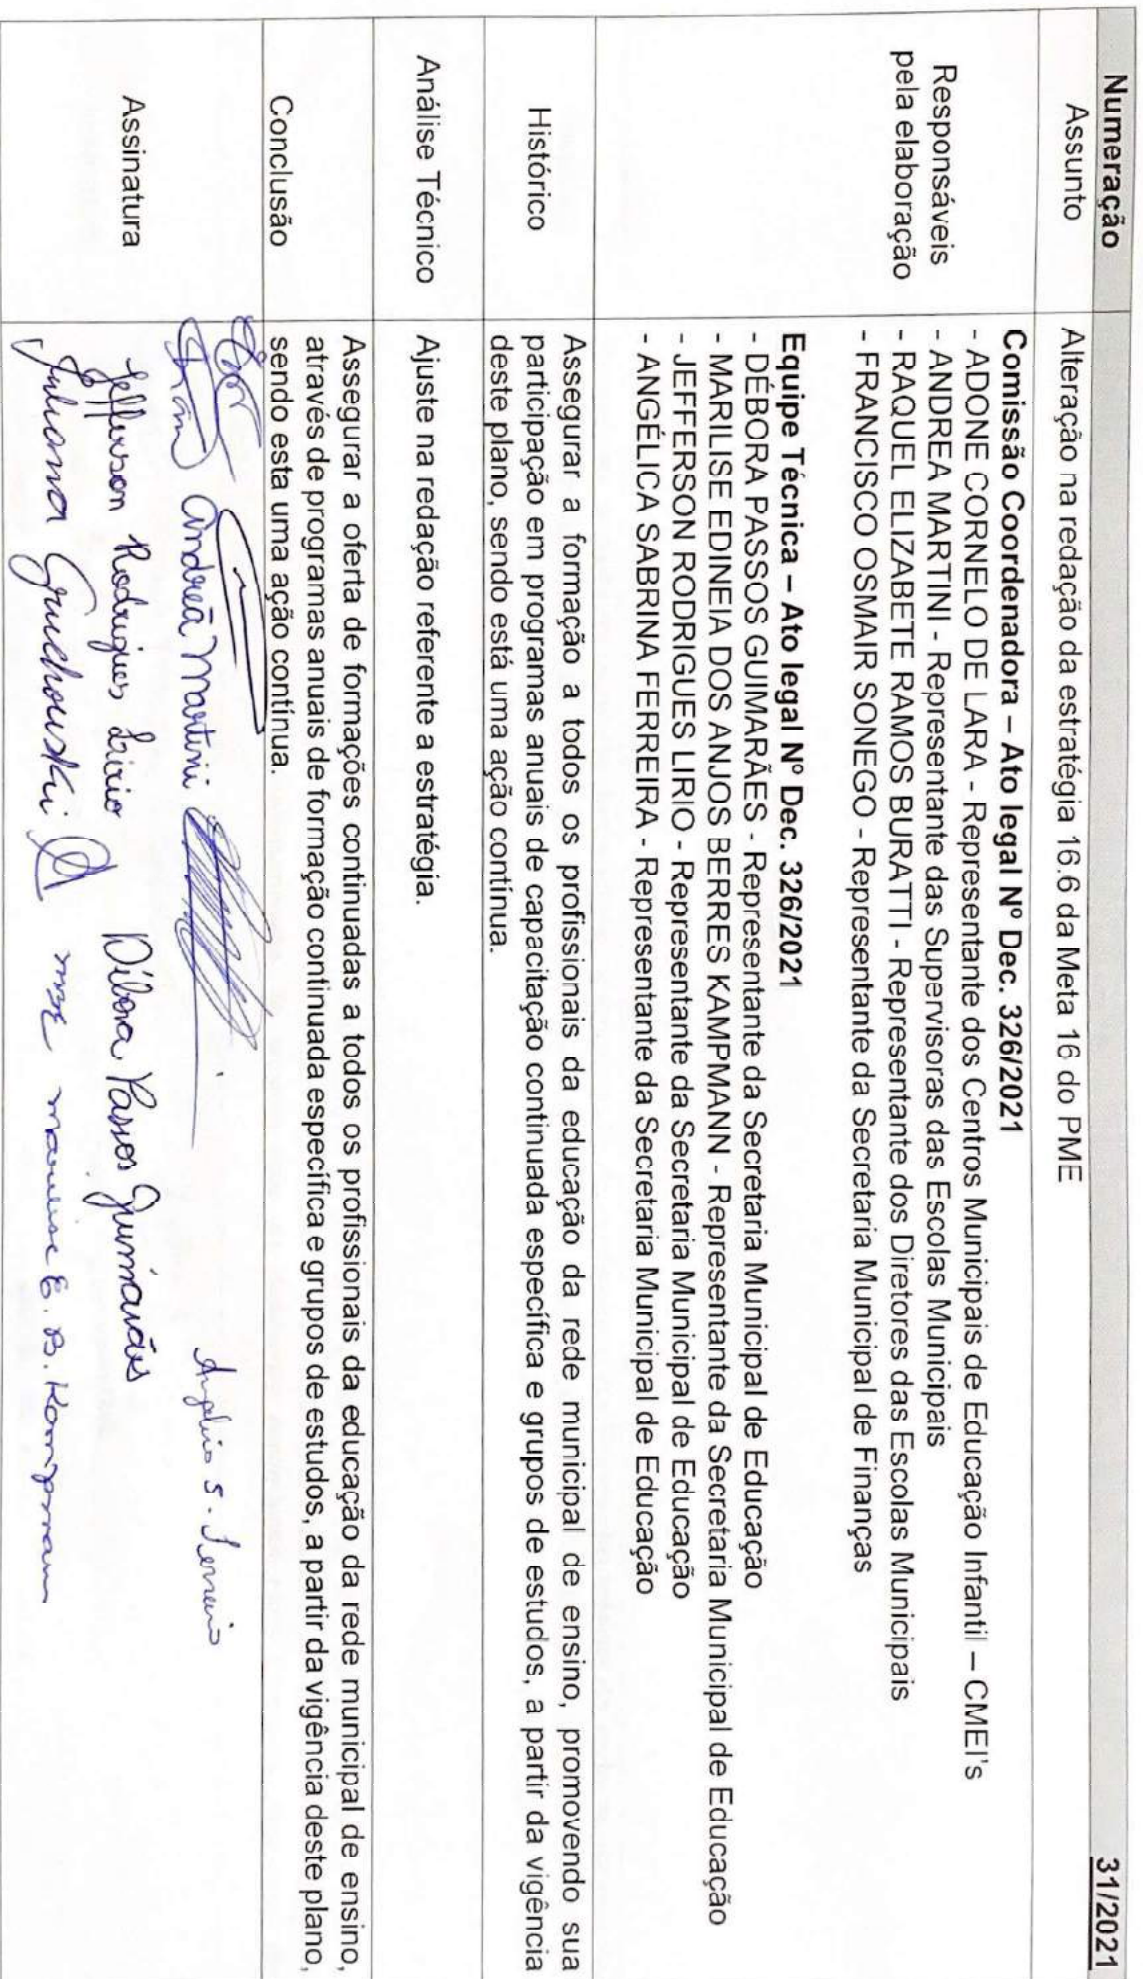 Numeração 31/2021
Assunto Alteração na redação da estratégia 16.6 da Meta 16 do PME
Responsáveis
pela elaboração
Comissão Coordenadora – Ato legal Nº Dec. 326/2021
- ADONE CORNELO DE LARA - Representante dos Centros Municipais de Educação Infantil – CMEI's
- ANDREA MARTINI - Representante das Supervisoras das Escolas Municipais
- RAQUEL ELIZABETE RAMOS BURATTI - Representante dos Diretores das Escolas Municipais
- FRANCISCO OSMAIR SONEGO - Representante da Secretaria Municipal de Finanças
Equipe Técnica – Ato legal Nº Dec. 326/2021
- DÉBORA PASSOS GUIMARÃES - Representante da Secretaria Municipal de Educação
- MARILISE EDINEIA DOS ANJOS BERRES KAMPMANN - Representante da Secretaria Municipal de Educação
- JEFFERSON RODRIGUES LIRIO - Representante da Secretaria Municipal de Educação
- ANGÉLICA SABRINA FERREIRA - Representante da Secretaria Municipal de Educação
Histórico
Assegurar a formação a todos os profissionais da educação da rede municipal de ensino, promovendo sua
participação em programas anuais de capacitação continuada específica e grupos de estudos, a partir da vigência
deste plano, sendo está uma ação contínua.
Análise Técnico Ajuste na redação referente a estratégia.
Conclusão
Assegurar a oferta de formações continuadas a todos os profissionais da educação da rede municipal de ensino,
através de programas anuais de formação continuada específica e grupos de estudos, a partir da vigência deste plano,
sendo esta uma ação contínua.
Assinatura
Andréa Martini
Jefferson Rodrigues Lirio Débora Passos Guimarães
Juliana Gruchouski Marilise E. B. Kampmann